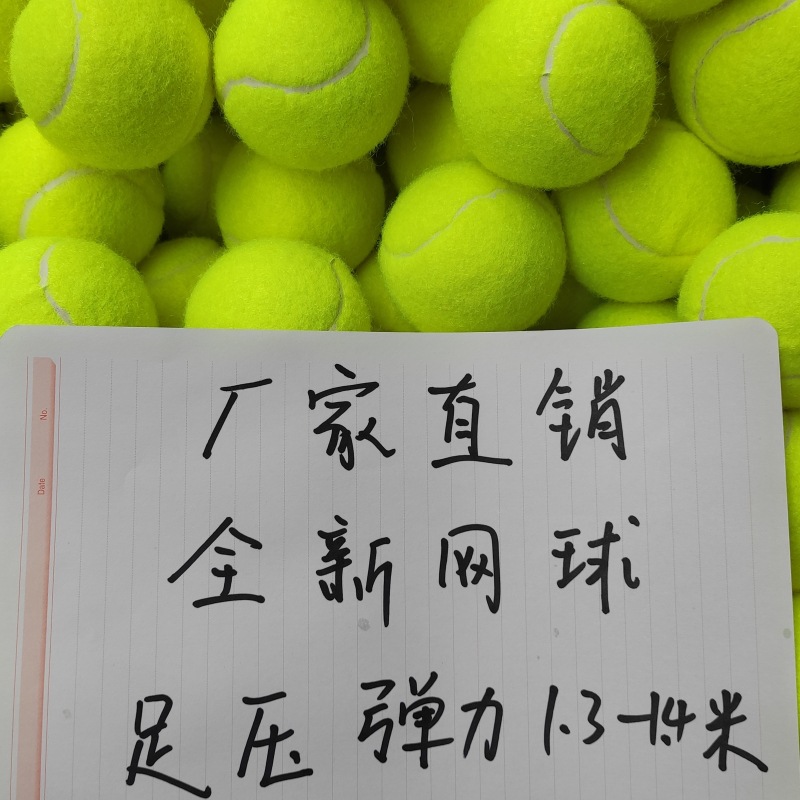 厂家直销
全新网球
足压 弹力1.3-1.4米
No.
Date